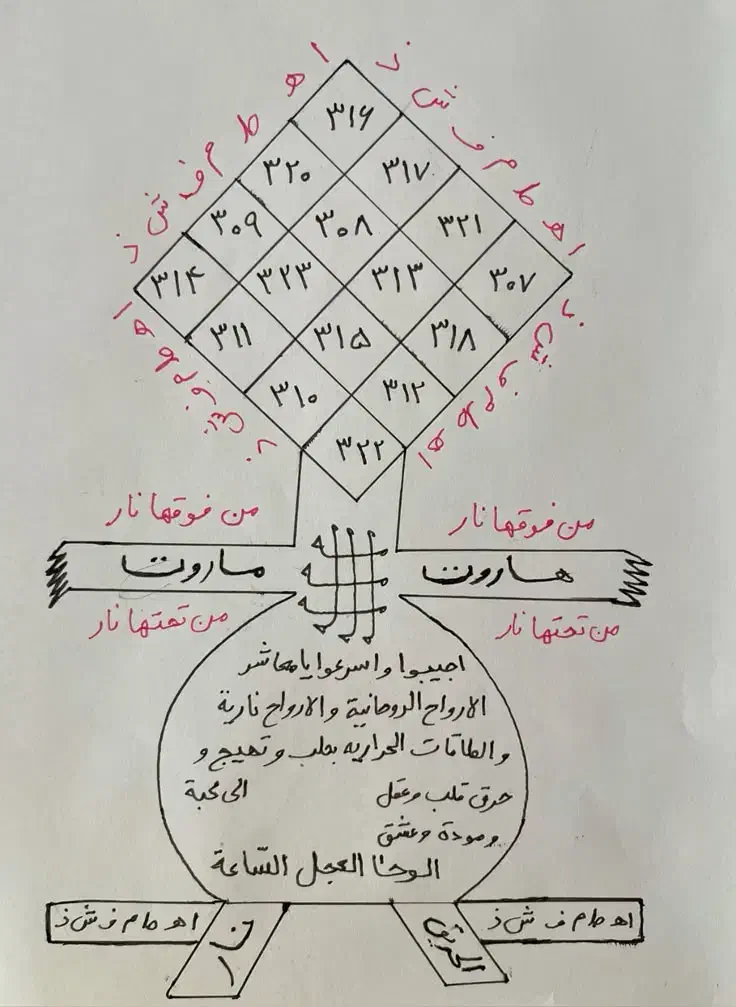 ا هـ ط م ف ش ذ
ا هـ ط م ف ش ذ
٣١٦
٣٢٠ ٣١٧
٣٠٩ ٣٠٨ ٣٢١
٣١٤ ٣٢٣ ٣١٣ ٣٠٧
٣١١ ٣١٥ ٣١٨
٣١٠ ٣١٢
٣٢٢
ا هـ ط م ف ش ذ
ا هـ ط م ف ش ذ
من فوقها نار
من فوقها نار
هاروت
ماروت
من تحتها نار
من تحتها نار
اجيبوا واسرعوا يا معاشر
الارواح الروحانية والارواح نارية
والطاقات الحراريه بجلب وتهيج و
حرق قلب وعقل الى محبة
ومودة وعشق
الوحا العجل الساعة
اهـ ط م ف ش ذ
الحريق
اهـ ط م ف ش ذ